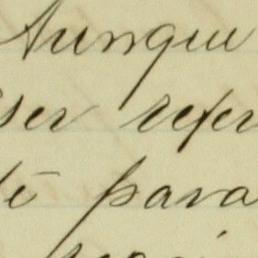 Aunque
ser refer
té para